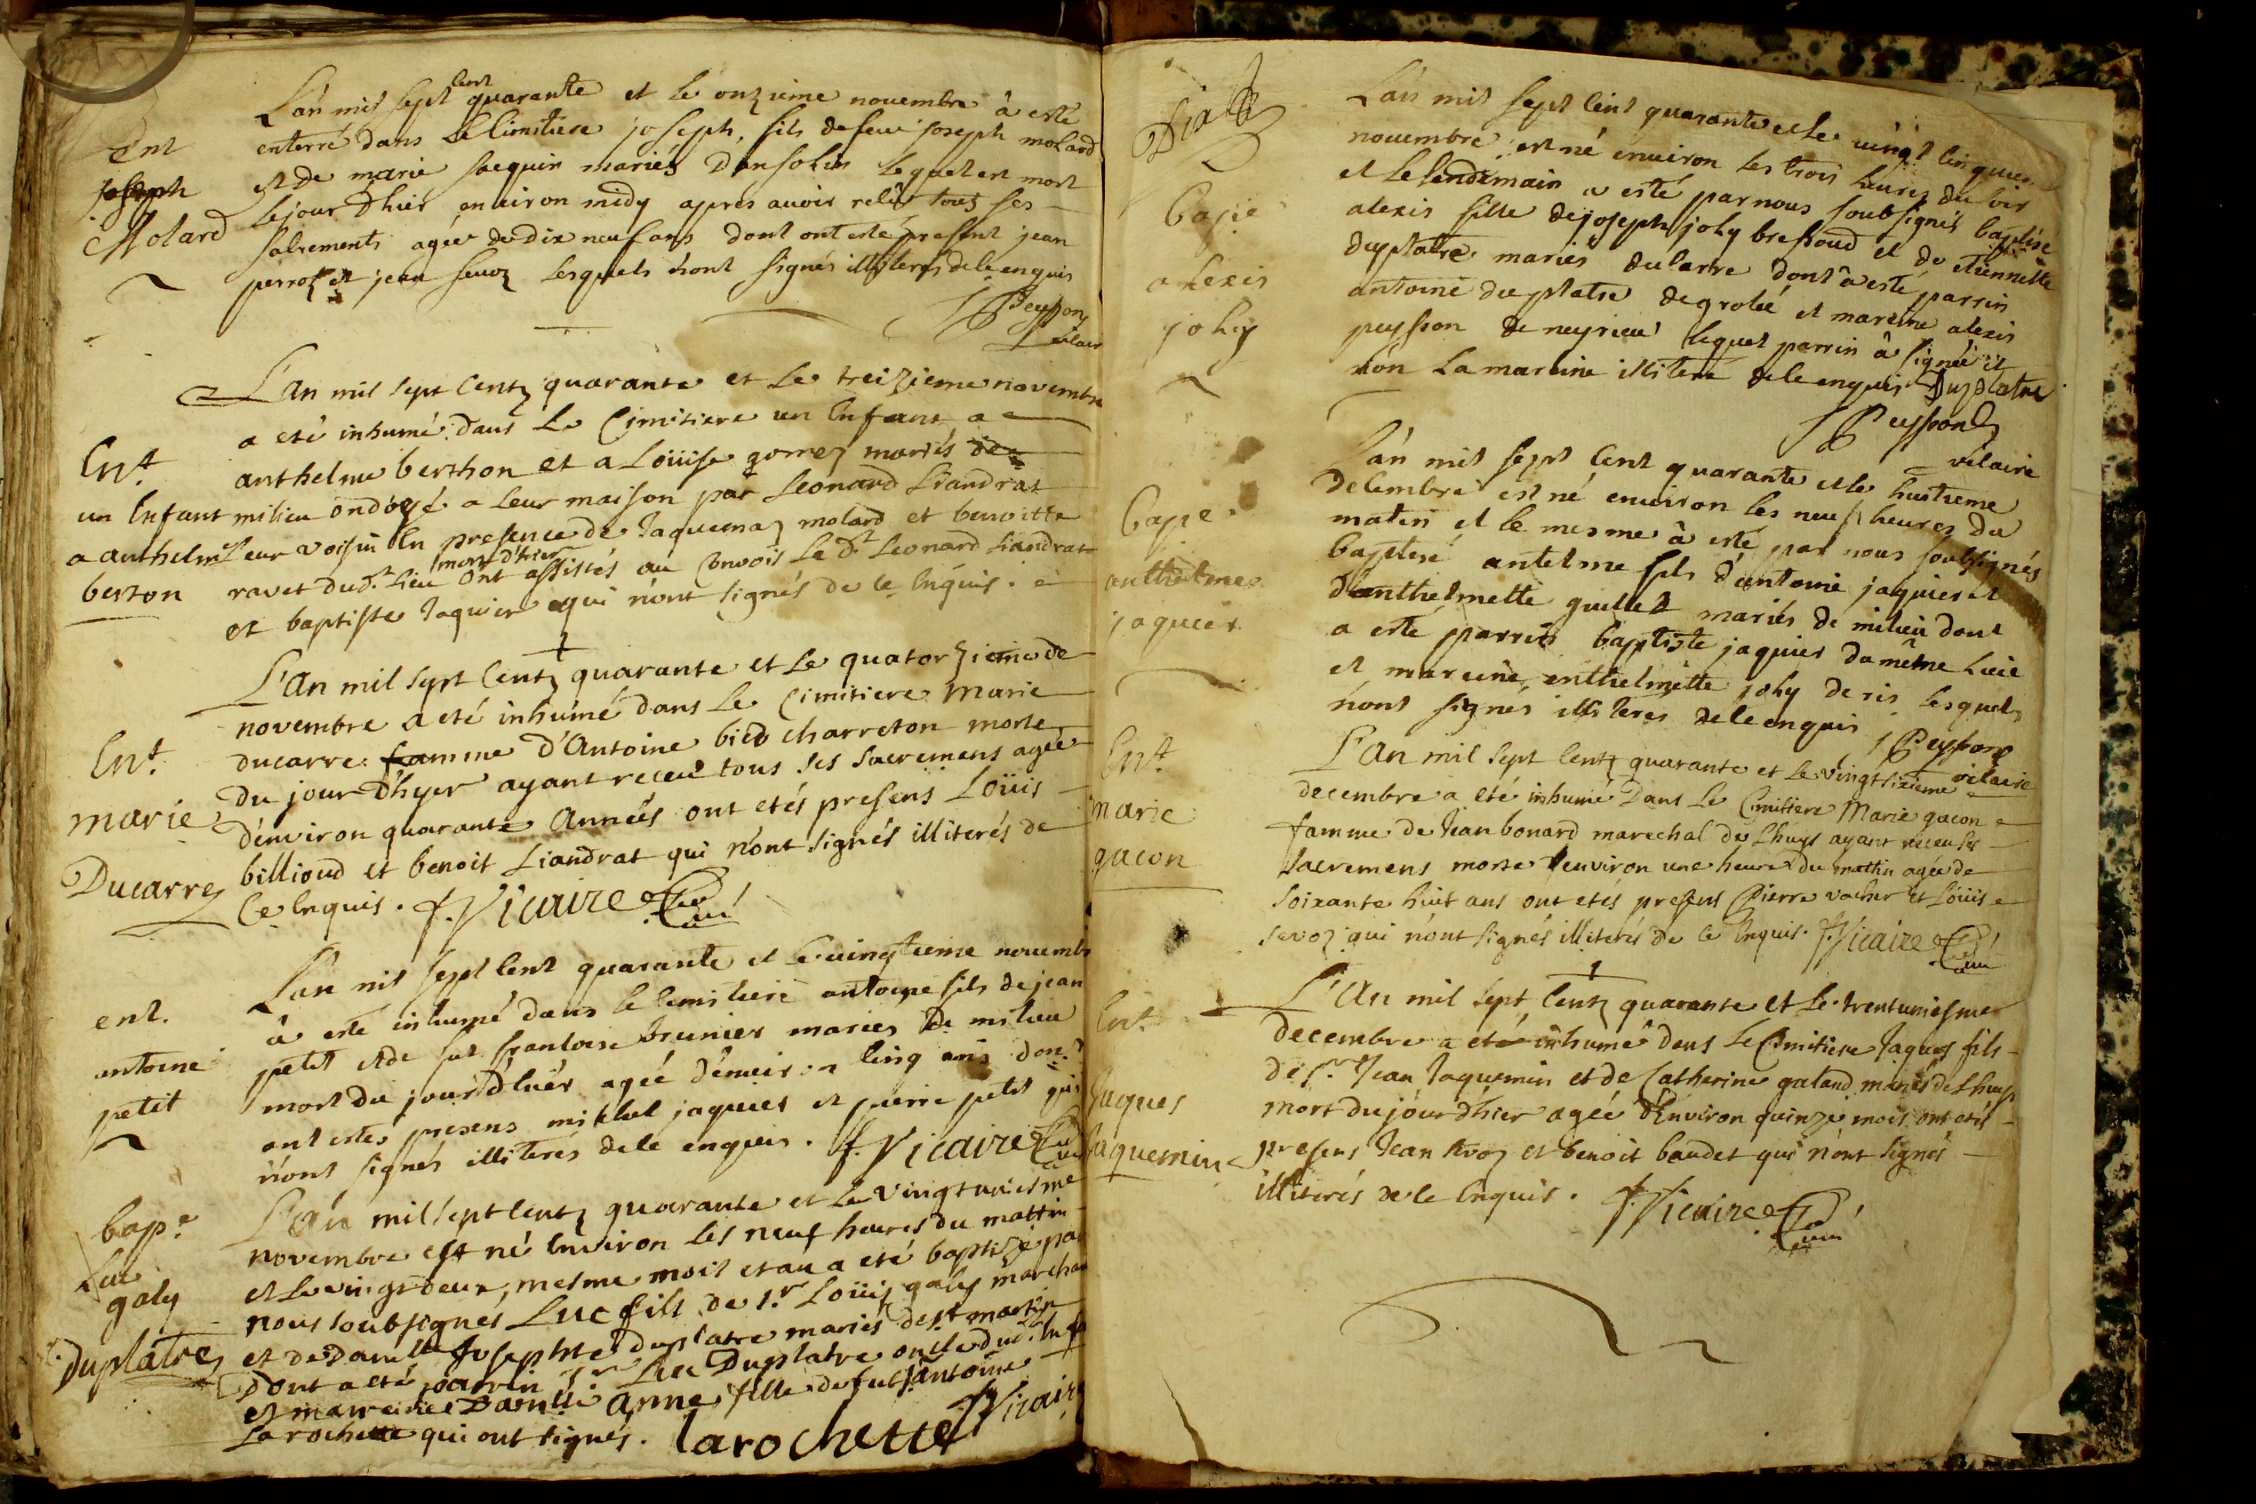 Ent
joseph
Molard
L'an mil sept cent quarante et le onzieme novembre à esté
enterré dans le Cimitiere joseph fils defeu joseph molard
et de marie jacquin mariés Dansolin lequel est mort
le jour D'hier environ midy apres avoir relù tous ses
sacrements agée de dix neuf ans dont ont esté present jean
perroz et jean sevoz lesquels n'ont signés illiteres de le enquis
Peysson
vicaire
Ent
un Enfant
a anthelme
berton
L'An mil sept Centz quarante et Le treizieme novembre
a eté inhumé dans Le Cimitiere un Enfant a
anthelme berthon et a Loüise gomez mariés de
milieu ondoyé a leur maison par Leonard Liandrat
Leur voisin En presence de Jaquemaz molard et benoitte
ravet dud.t Lieu mort d'hier ont assistés au Convois Le d.t Leonard Liandrat
et baptiste Jaquier qui n'ont signés de ce Enquis
Ent
marie
Ducarrez
L'An mil sept Centz quarante et Le quatorzieme de
novembre a eté inhumé dans Le Cimitiere Marie
ducarre famme d'Antoine bied charreton morte
Du jour D'hyer ayant receu tous ses sacremens agée
d'environ quarante Années ont etés presens Loüis
billioud et benoit Liandrat qui n'ont signés illiterés de
Ce Enquis. f. Vicaire Curé
ent.
antoine
petit
L'an mil sept cent quarante et le vingtieme novembr
à esté inhumé dans le Cimitiere antoine fils de jean
petit et de fut francoise brunier maries De milieu
mort du jour d'hier agée d'environ cinq ans dont
ont estés presens mikhel jaquier et pierre petit qui
n'ont signés illiterés dele enquis. f. Vicaire Curé
bap.e
Luc
galy
Duplatrez
L'An mil sept Centz quarante et Le vingtuniesme
novembre est né Environ les neuf heures du mattin
et Le vingt deux, mesme mois et an a eté baptizé par
nous soubsignés Luc fils de s.r Loüis galy marchan
et de Dam.lle Josephte Duplatre mariés de s.t martin
Dont a eté parrin s.r Luc Duplatre oncle dud.t Enfa
et marreine Dam.lle Anne fille de fut s.r Antoine
Larochette qui ont signés. larochette f. Vicaire
Bap.e
alexis
joly
L'an mil sept cent quarante et le vingt cinquiem
novembre est né environ les trois heures du soir
et le lendemain a esté par nous soubsignés baptisé
alexis fille de joseph joly bressoud et de etiennette
duplatre mariés ducarre dont à esté parrin
antoine duplatre de grolée et mareine alexis
peysson de neyrieu lequel parrin à signé et
non la mareine illiterée dele enquis Duplatre
Peysson
vicaire
Bap.e
anthelme
jaquier
L'an mil sept cent quarante et le huitieme
decembre est né environ les neuf heures du
matin et le mesme à esté par nous soubsignés
Baptisé antelme fils d'antoine jaquier et
d'anthelmette guillet mariés de milieu dont
a esté parrin baptiste jaquier du même lieu
et mareine enthelmette joly de ris lesquels
n'ont signés illiterés dele enquis
Peysson
vicaire
Ent
Marie
gacon
L'An mil sept Centz quarante et Le vingtsixieme
decembre a eté inhumé Dans Le Cimitiere Marie gacon
famme de Jean bonard marechal de Lhuys ayant receu ses
sacremens morte d'environ une heure du mattin agée de
soixante huit ans ont etés presens Pierre vacher et Loüis
sevoz qui n'ont signés illiterés de ce Enquis. f. Vicaire Curé
Ent
Jaques
Jaquemin
L'An mil sept Centz quarante et Le trentuniesme
decembre a eté inhumé dens Le Cimitiere Jaques fils
de s.r Jean Jaquemin et de Catherine galand mariés de Lhuys
mort du jour d'hier agée d'Environ quinze mois ont etés
presens Jean sevoz et benoit baudet qui n'ont signés
illiterés de le Enquis. f. Vicaire Curé